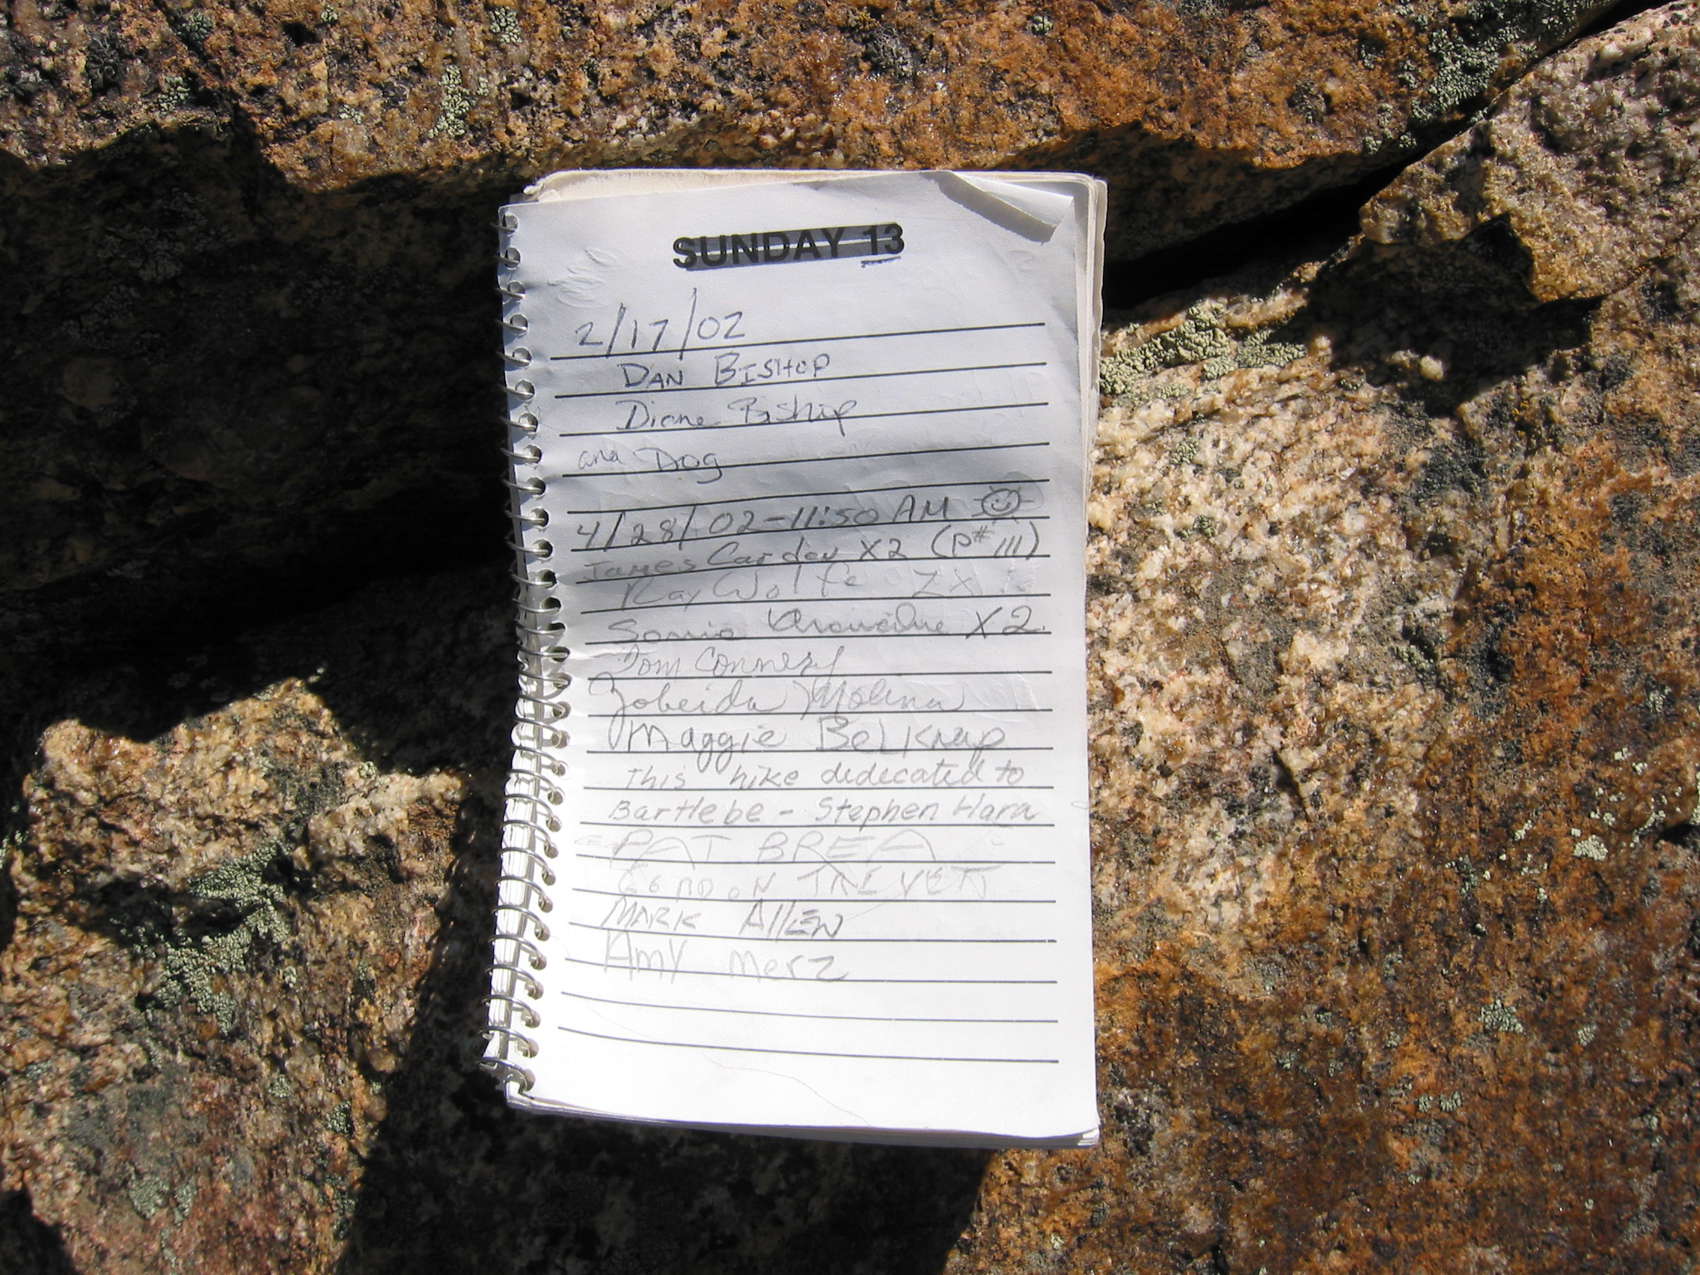 SUNDAY 13
2/17/02
DAN BISHOP
Diane Bishop
and Dog
4/28/02-11:50 AM
James Carden X2 (P#111)
Ray Wolfe 2X
Sonia X2
Tom Connery
Zobeida Molina
Maggie BelKnap
This hike dedecated to
Bartlebe - Stephen Hara
PAT BREA
GORDON TRIVETT
MARK AllEN
AMY Merz